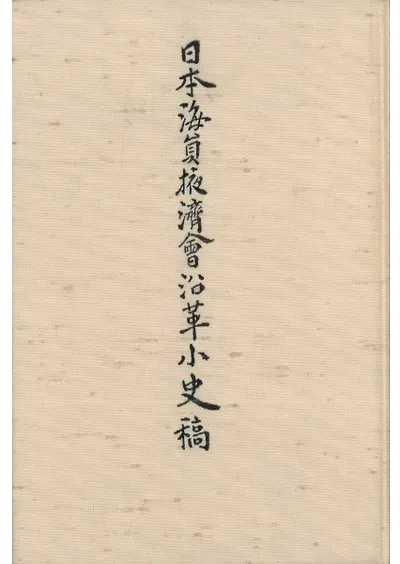 日本海員掖濟會沿革小史稿